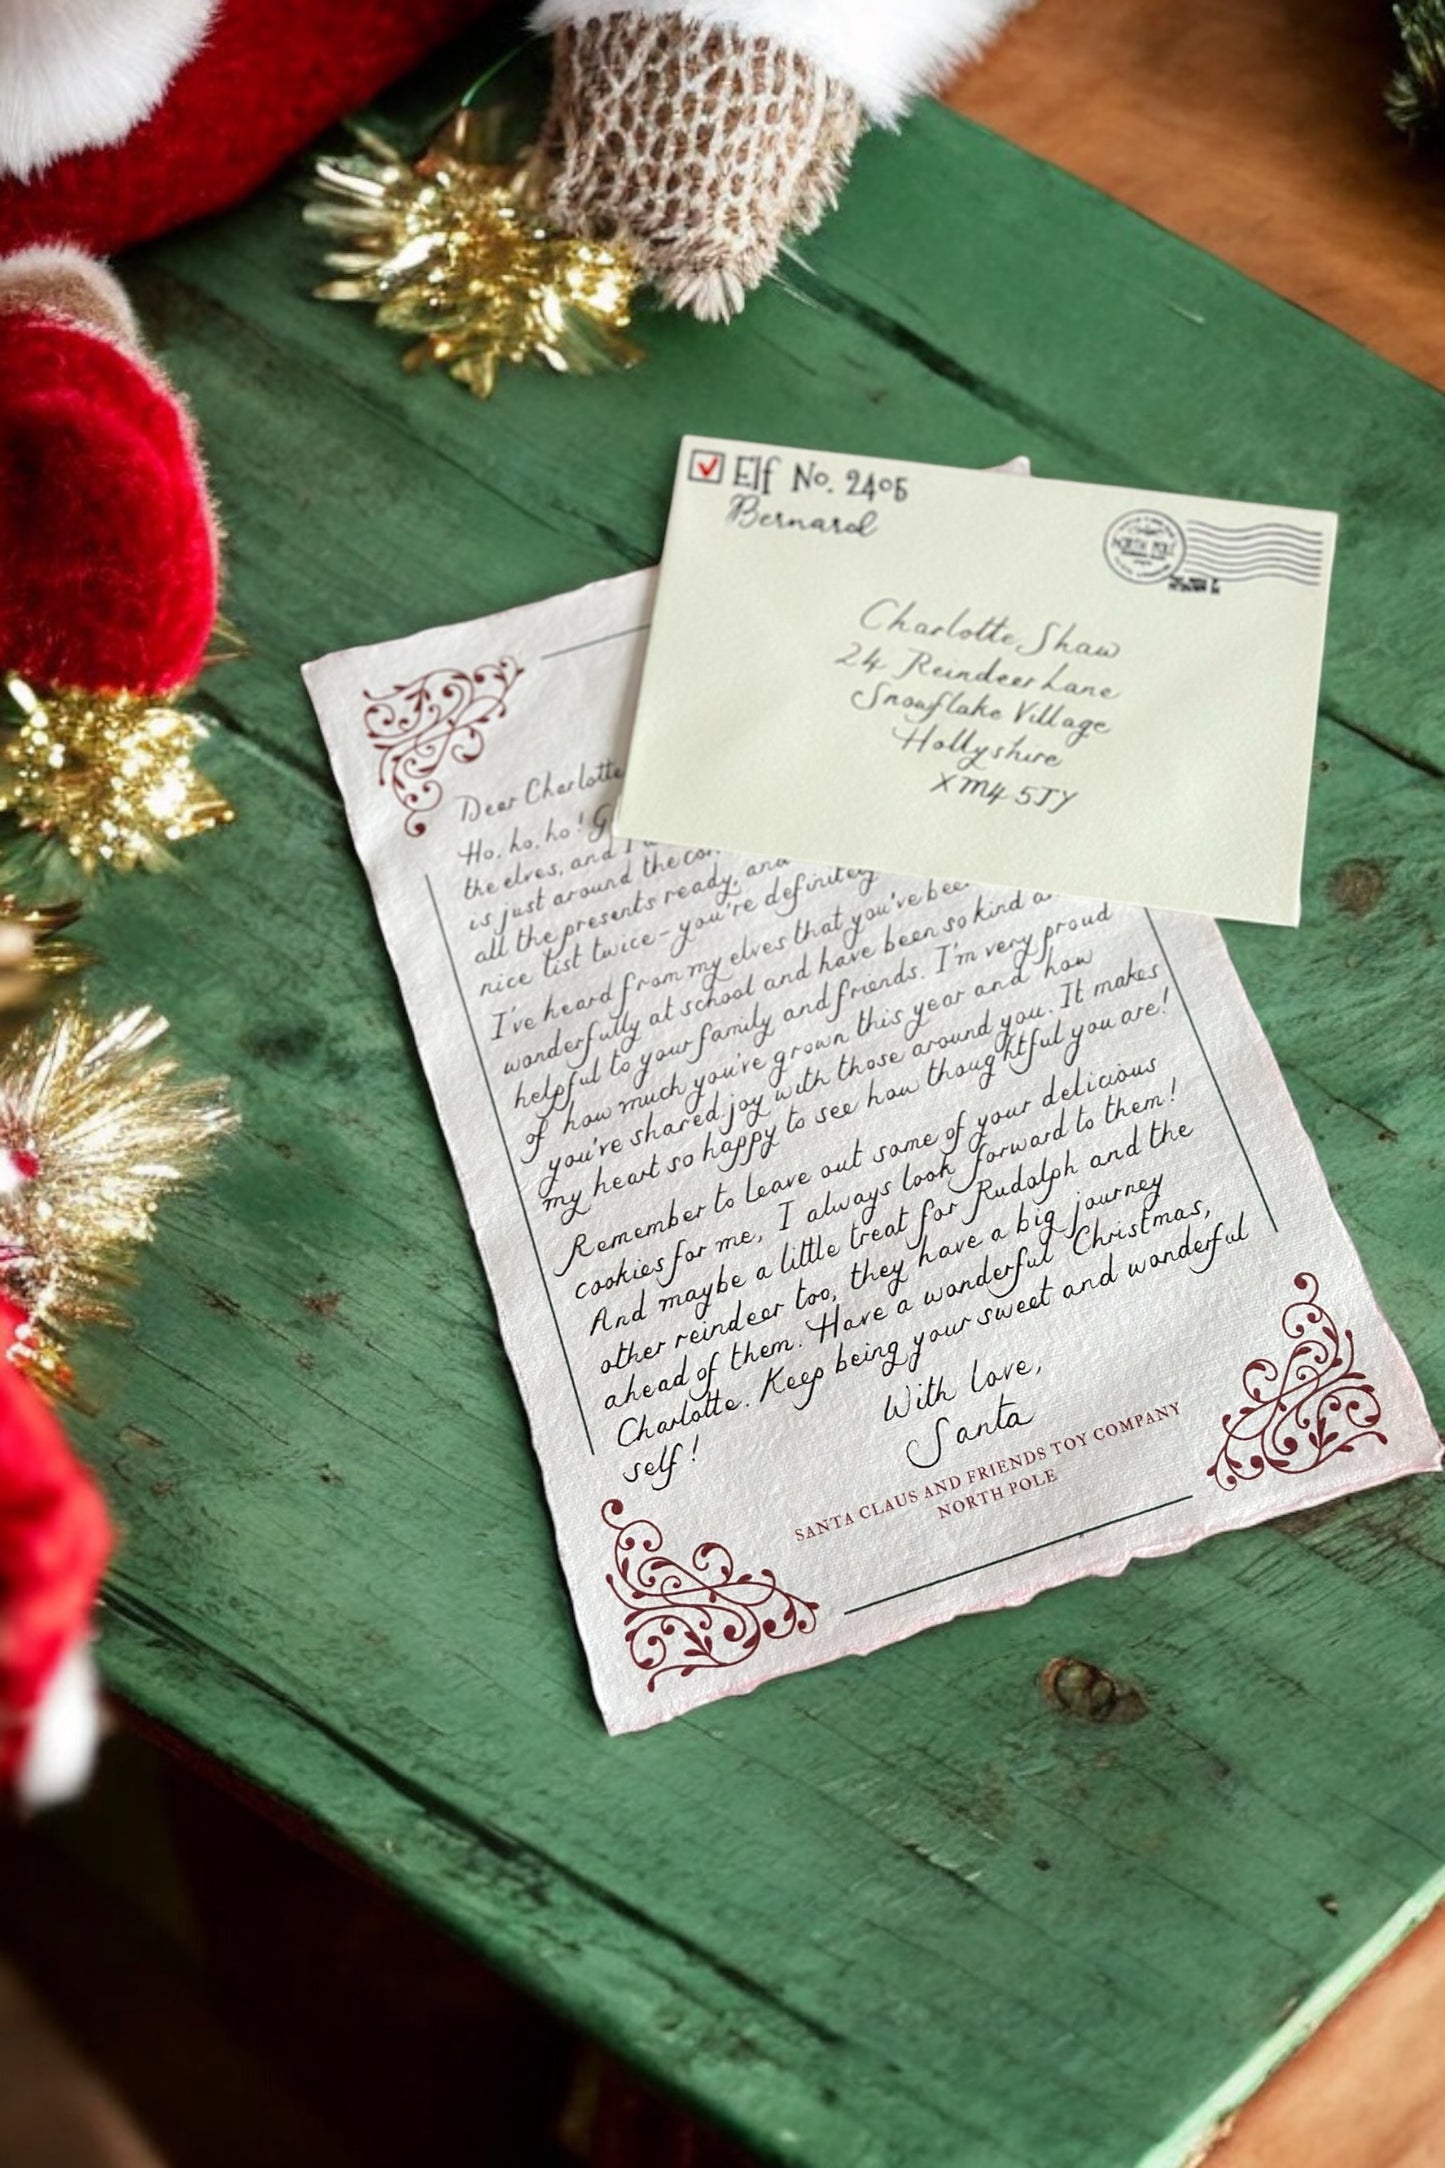 Elf No. 2405
Bernard
NORTH POLE
Charlotte Shaw
24 Reindeer Lane
Snowflake Village
Hollyshire
XM4 5JY
Dear Charlotte
Ho, ho, ho! G
the elves, and I
is just around the
all the presents ready, and
nice list twice - you're definitely
I've heard from my elves that you've been
wonderfully at school and have been so kind
helpful to your family and friends. I'm very proud
of how much you've grown this year and how
you've shared joy with those around you. It makes
my heart so happy to see how thoughtful you are!
Remember to leave out some of your delicious
cookies for me, I always look forward to them!
And maybe a little treat for Rudolph and the
other reindeer too, they have a big journey
ahead of them. Have a wonderful Christmas,
Charlotte. Keep being your sweet and wonderful
self!
With love,
Santa
SANTA CLAUS AND FRIENDS TOY COMPANY
NORTH POLE